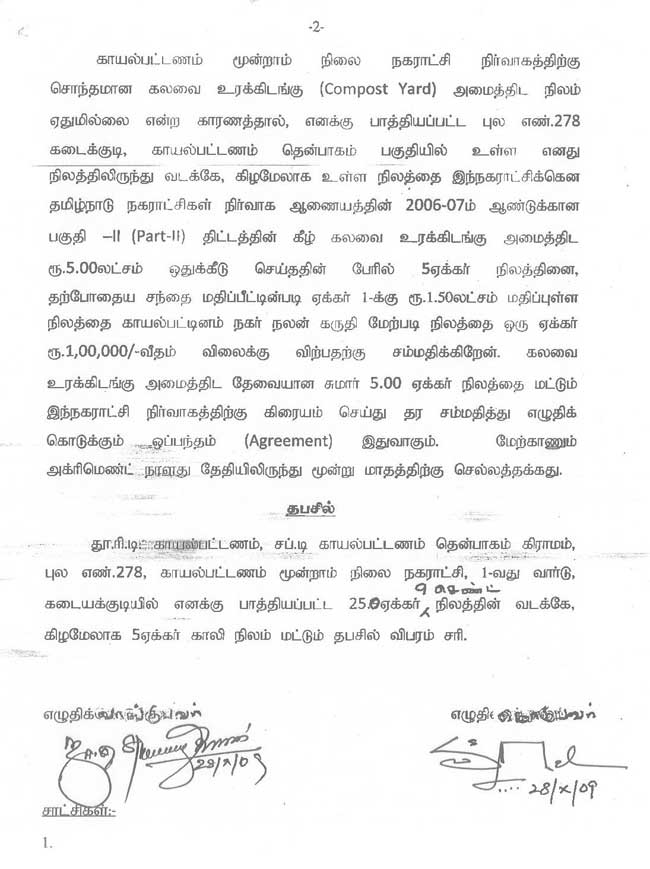 -2-
காயல்பட்டணம் மூன்றாம் நிலை நகராட்சி நிர்வாகத்திற்கு
சொந்தமான கலவை உரக்கிடங்கு (Compost Yard) அமைத்திட நிலம்
ஏதுமில்லை என்ற காரணத்தால், எனக்கு பாத்தியப்பட்ட புல எண்.278
கடைக்குடி, காயல்பட்டணம் தென்பாகம் பகுதியில் உள்ள எனது
நிலத்திலிருந்து வடக்கே, கிழமேலாக உள்ள நிலத்தை இந்நகராட்சிக்கென
தமிழ்நாடு நகராட்சிகள் நிர்வாக ஆணையத்தின் 2006-07ம் ஆண்டுக்கான
பகுதி –II (Part-II) திட்டத்தின் கீழ் கலவை உரக்கிடங்கு அமைத்திட
ரூ.5.00லட்சம் ஒதுக்கீடு செய்ததின் பேரில் 5ஏக்கர் நிலத்தினை,
தற்போதைய சந்தை மதிப்பீட்டின்படி ஏக்கர் 1-க்கு ரூ.1.50லட்சம் மதிப்புள்ள
நிலத்தை காயல்பட்டினம் நகர் நலன் கருதி மேற்படி நிலத்தை ஒரு ஏக்கர்
ரூ.1,00,000/-வீதம் விலைக்கு விற்பதற்கு சம்மதிக்கிறேன். கலவை
உரக்கிடங்கு அமைத்திட தேவையான சுமார் 5.00 ஏக்கர் நிலத்தை மட்டும்
இந்நகராட்சி நிர்வாகத்திற்கு கிரையம் செய்து தர சம்மதித்து எழுதிக்
கொடுக்கும் ஒப்பந்தம் (Agreement) இதுவாகும். மேற்காணும்
அக்ரிமெண்ட் நாளது தேதியிலிருந்து மூன்று மாதத்திற்கு செல்லத்தக்கது.
தபசில்
தூ.ரி.டி காயல்பட்டணம், சப்.டி காயல்பட்டணம் தென்பாகம் கிராமம்,
புல எண்.278, காயல்பட்டணம் மூன்றாம் நிலை நகராட்சி, 1-வது வார்டு,
9 செண்ட்
கடையக்குடியில் எனக்கு பாத்தியப்பட்ட 25.0ஏக்கர் நிலத்தின் வடக்கே,
கிழமேலாக 5ஏக்கர் காலி நிலம் மட்டும் தபசில் விபரம் சரி.
எழுதிக் வாங்குபவர் எழுதி
28/X/09
28/X/09
சாட்சிகள்:-
1.